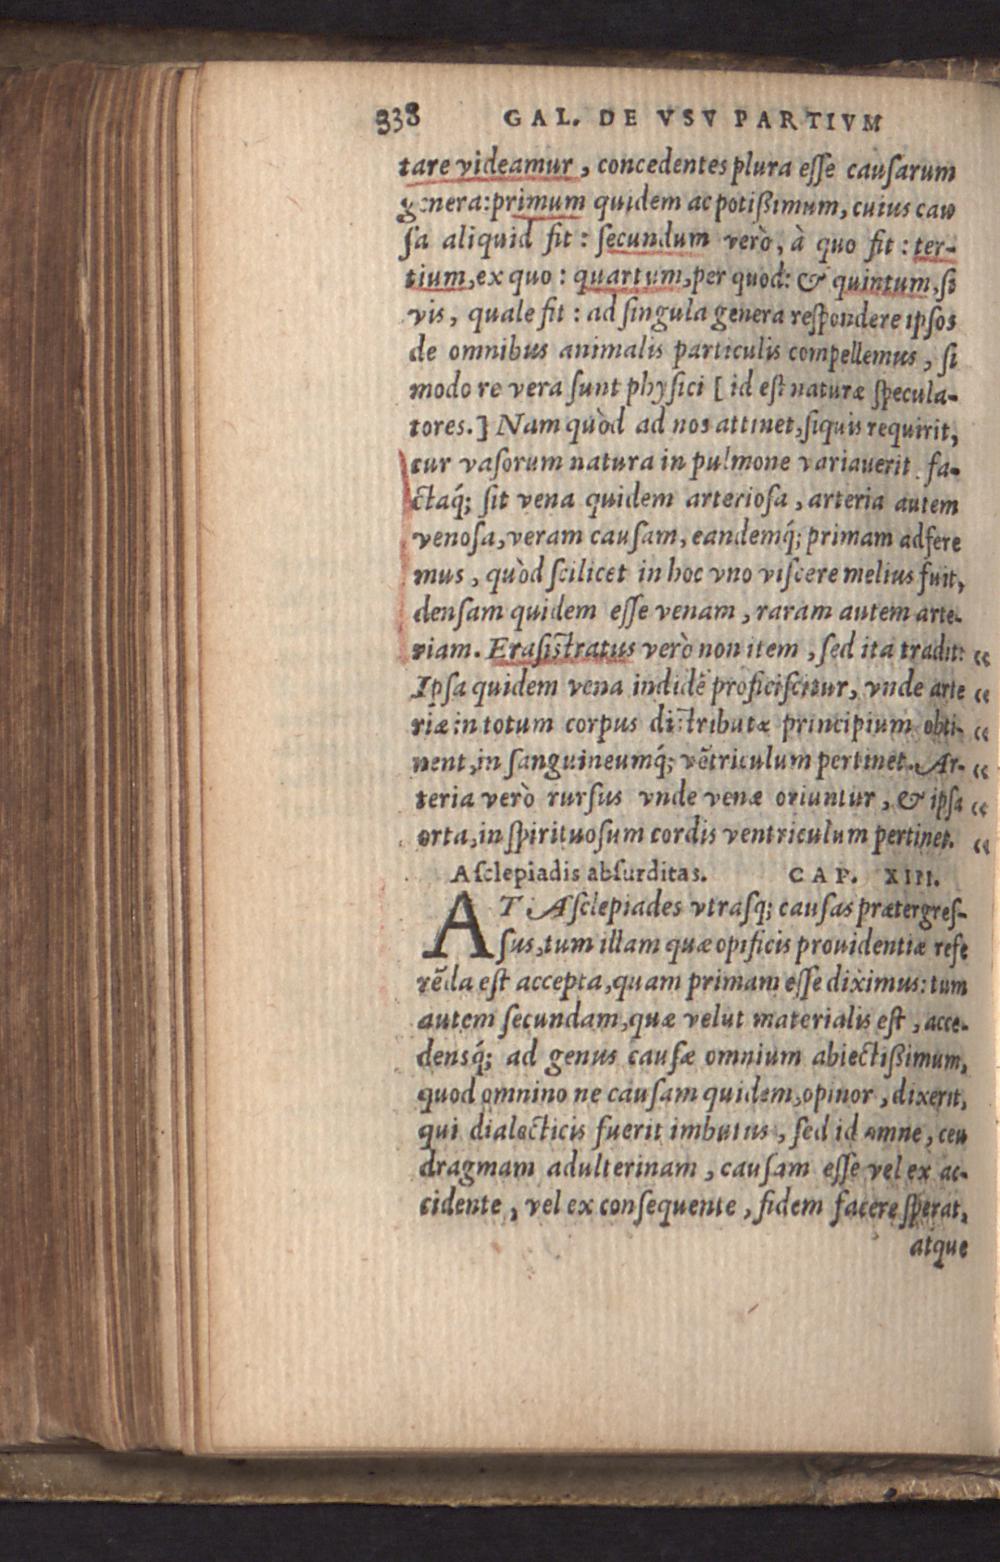 338 GAL. DE VSV PARTIVM
tare videamur, concedentes plura eſſe cauſarum
genera: primum quidem ac potißimum, cuius cau
ſa aliquid fit: ſecundum verò, à quo fit: ter-
tium, ex quo: quartum, per quod: & quintum, ſi
vis, quale fit: ad ſingula genera reſpondere ipſos
de omnibus animalis particulis compellemus, ſi
modo re vera ſunt phyſici [id eſt naturæ ſpecula-
tores.] Nam quòd ad nos attinet, ſiquis requirit,
cur vaſorum natura in pulmone variauerit. fa-
ctaq́; ſit vena quidem arterioſa, arteria autem
venoſa, veram cauſam, eandemq́; primam adfere
mus, quòd ſcilicet in hoc vno viſcere melius fuit,
denſam quidem eſſe venam, raram autem arte-
riam. Eraſiſtratus verò non item, ſed ita tradit: “
Ipſa quidem vena indidē proficiſcitur, vnde arte “
riæ in totum corpus diſtributæ principium obti- “
nent, in ſanguineumq́; vētriculum pertinet. Ar- “
teria verò rurſus vnde venæ oriuntur, & ipſa “
orta, in ſpirituoſum cordis ventriculum pertinet. “
Aſclepiadis abſurditas. CAP. XIII.
AT Aſclepiades vtraſq; cauſas prætergreſ-
ſus, tum illam quæ opificis prouidentiæ refe
rēda eſt accepta, quam primam eſſe diximus: tum
autem ſecundam, quæ velut materialis eſt, acce-
denſq́; ad genus cauſæ omnium abiectißimum,
quod omnino ne cauſam quidem, opinor, dixerit,
qui dialecticis fuerit imbutus, ſed id omne, ceu
dragmam adulterinam, cauſam eſſe vel ex ac-
cidente, vel ex conſequente, fidem facere ſperat,
atque